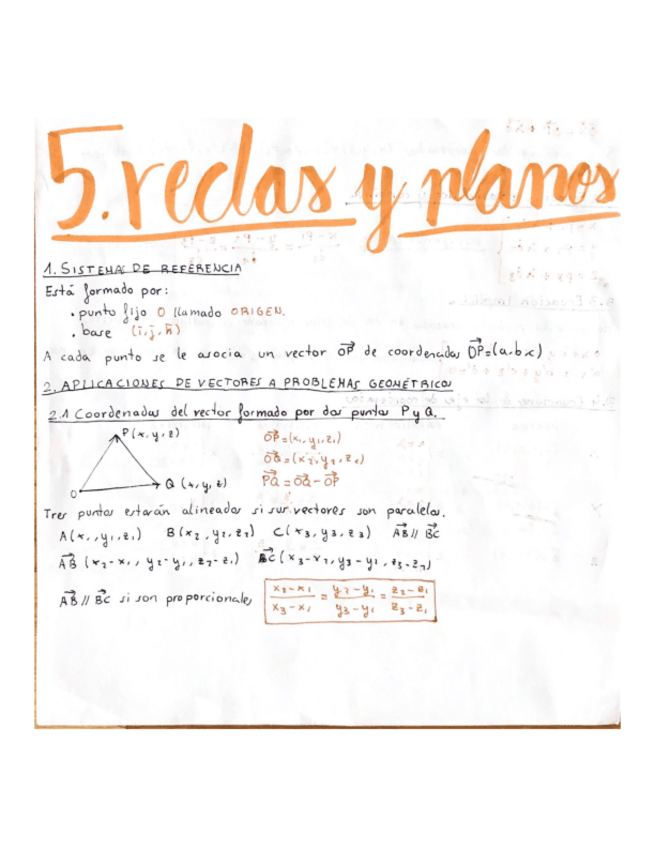 5. rectas y planos
1. SISTEMA DE REFERENCIA
Está formado por:
• punto fijo O llamado ORIGEN.
• base (i⃗, j⃗, k⃗)
A cada punto se le asocia un vector OP⃗ de coordenadas OP⃗=(a,b,c)
2. APLICACIONES DE VECTORES A PROBLEMAS GEOMÉTRICOS
2.1 Coordenadas del vector formado por dos puntos P y Q.
P(x, y, z)
OP⃗=(x₁, y₁, z₁)
OQ⃗=(x₂, y₂, z₂)
Q (x, y, z)
PQ⃗ = OQ⃗ - OP⃗
O
Tres puntos estarán alineados si sus vectores son paralelos.
A(x₁, y₁, z₁) B(x₂, y₂, z₂) C(x₃, y₃, z₃) AB⃗ // BC⃗
AB⃗ (x₂-x₁, y₂-y₁, z₂-z₁) BC⃗ (x₃-x₂, y₃-y₂, z₃-z₂)
AB⃗ // BC⃗ si son proporcionales
x₂-x₁ / x₃-x₁ = y₂-y₁ / y₃-y₁ = z₂-z₁ / z₃-z₁